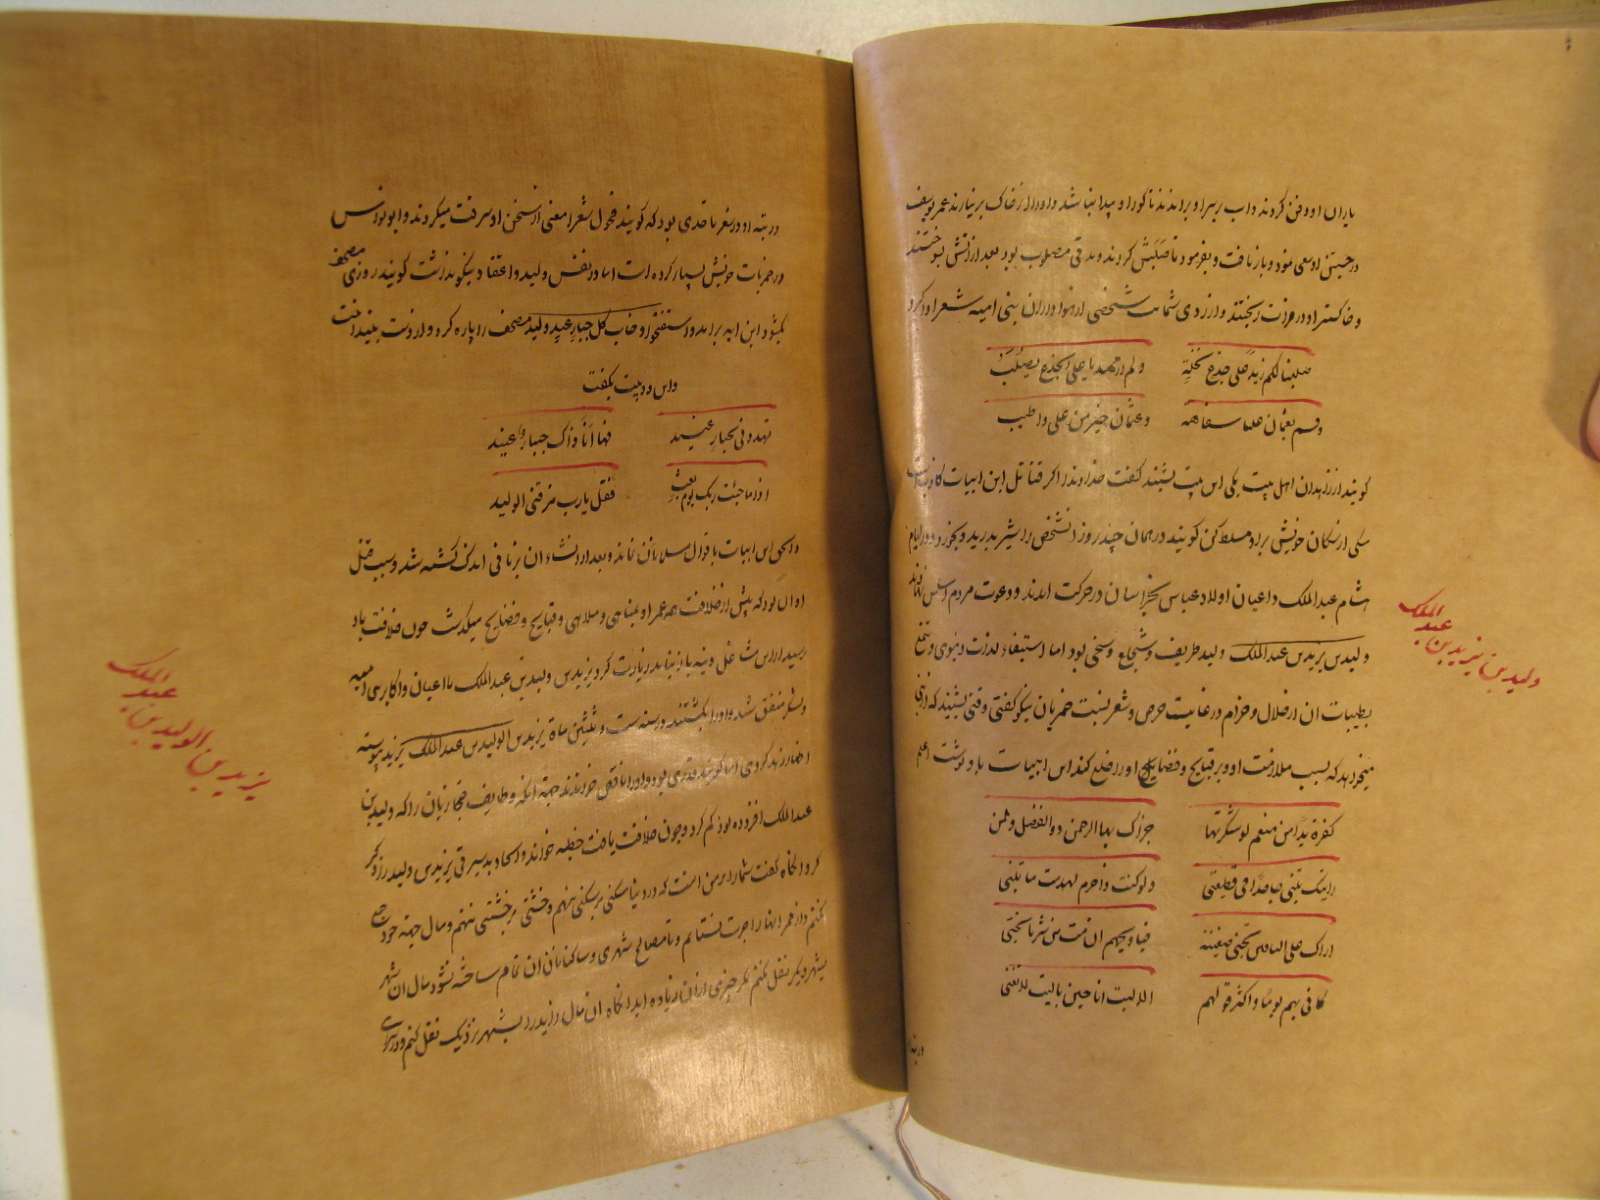 یاران او دفن کردند و اب بر سر او براندند تا کور او پیدا نباشد و او را از خاک بر نیارند عمر یوسف
در جستن او سعی نمود و باز یافت و بفرمود تا صلبش کردند و مدتی مصلوب بود بعد از ان اتش بسوختند
و خاکستر او در فرات ریختند و از روی شماتت شخصی از هواداران بنی امیه شعر ادا کرد
صلبنا لکم زیدا علی جذع نخلة
ولم ار مهدیا علی الجذع یصلب
وقستم بعثمان علیا سفاهة
وعثمان خیر من علی واطیب
کویند از زاهدان اهل بیت یکی این بیت بشنید کفت خداوندا اکر قائل این ابیات کاذبست
سکی از سکان خویش برو مسلط کن کویند در همان چند روز انشخص را شیر بدرید و بخورد و در ایام
هشام عبد الملک داعیان اولاد عباس بخراسان در حرکت امدند و دعوت مردم
ولید بن یزید بن عبد الملک
ولید بن یزید بن عبد الملک ولید ظریف و شجاع و سخی بود اما استیفاء لذات دنیوی و تمتع
بطیبات ان از حلال و حرام در غایت حرص و شعر نسبت خمریات نیکو کفتی وقتی بشنید که
میخواهد که بسبب ملازمت او بر قبایح و فضایح او را خلع کند این ابیات باو نوشت
کفرت یدا من منعم لو شکرتها
جزاک بها الرحمن ذو الفضل والمن
رایتک تبنی جاهدا فی قطیعتی
ولو کنت ذا حزم لهدمت ما تبنی
اراک علی الباقین تجنی ضغینة
فیا ویحهم ان مت من شر ما تجنی
کانی بهم یوما واکثر قولهم
الا لیت انا حین یا لیت لا تغنی
در رتبه او در شعر تا حدی بود که کویند فحول شعرا معنی از سخن او سرقت میکردند و ابو نواس
در خمریات خویش بسیار کرده است اما در نفس ولید و اعتقاد نیکو نداشت کویند روزی مصحف
بکشود این ایه برامد واستفتحوا وخاب کل جبار عنید ولید مصحف را پاره کرد و از دست بینداخت
و این دو بیت بکفت
تهددنی بجبار عنید
فها انا ذاک جبار عنید
اذا ما جئت ربک یوم بعث
فقل یا رب مزقنی الولید
والحق این ابیات باقوال مسلمانان نماند و بعد از انشاء ان بزمانی اندک کشته شد و سبب قتل
او ان بود که پیش از خلافت همه عمر او بمناهی و ملاهی و قبایح و فضایح میکذشت چون خلافت باو
رسید از این شاغل دینه باز نیامد زیادت کرد یزید بن ولید بن عبد الملک با اعیان و اکابر
و لشکر متفق شد و او را بکشتند در سنه ست و عشرین و مایة یزید بن الولید بن عبد الملک یزید پیوسته
یزید بن الولید بن عبد الملک
اظهار زهد کردی اما کویند قدری بود و او را ناقص خواندند جهة انکه وظایف حجازیان را که ولید بن
عبد الملک افزوده بود کم کرد و چون خلافت یافت خطبه خواند و
کرد انکاه کفت شما را بر من انست که در دنیا سنکی بر سنکی ننهم و خشتی بر خشتی ننهم و مال جهة خود جمع
نکنم و تا مصالح شهری و ساکنان ان تمام ساخته نشود مال ان شهر
بشهر دیکر نقل نکنم مکر چیزی از ان زیاده اید انکاه ان مال زاید را بشهر نزدیک نقل کنم و در